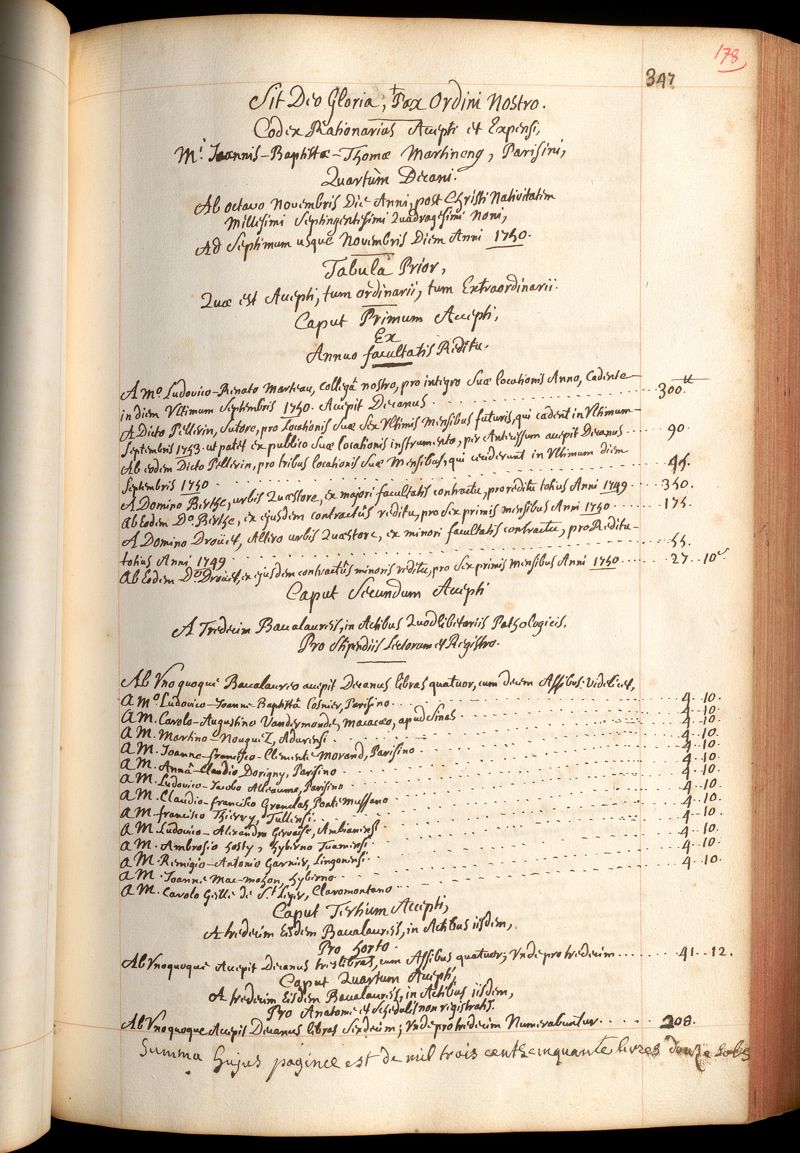 178
347
Sit Deo Gloria, Pax Ordini Nostro.
Codex Rationarius Accepti et Expensi,
M.i Joannis-Baptistæ-Thomæ Martinenq, Parisini,
Quartùm Decani.
Ab octavo Novembris Die Anni, post Christi Nativitatem
Millesimi Septingentesimi Quadragesimi Noni,
Ad Septimum usque Novembris Diem Anni 1750.
Tabula Prior,
Quæ est Accepti, tum ordinarii, tum Extraordinarii.
Caput Primum Accepti,
Ex
Annuo facultatis Reditu.
A Mo. Ludovico-Renato Marteau, collegâ nostro, pro integro Suæ locationis Anno, Cadente
in diem Ultimum Septembris 1750. Accepit Decanus . . . . 300.tt
A Dicto Pellerin, Sutore, pro Locationis Suæ Sex Ultimis Mensibus futuris, qui cadent in Ultimum
Septembris 1753. ut patet ex publico Suæ locationis instrumento, per Anticessum accepit Decanus . . . . 90.
Ab eodem Dicto Pellerin, pro tribus locationis Suæ Mensibus, qui ceciderunt in Ultimum diem
Septembris 1750 . . . . 45.
A Domino Berthe, urbis Quæstore, ex majori facultatis contractu, pro reditu totius Anni 1749 . . . . 350.
Ab Eodem Do. Berthe, ex ejusdem contractûs reditu, pro sex primis mensibus Anni 1750 . . . . 175.
A Domino Droüet, Altero urbis Quæstore, ex minori facultatis contractu, pro Reditu
totius Anni 1749 . . . . 55.
Ab Eodem Do. Droüet, ex ejusdem contractûs minoris reditu, pro Sex primis mensibus Anni 1750 . . . . 27 . . 10s
Caput Secundum Accepti
A Tredecim Baccalaureis, in Actibus Quodlibetariis Pathologicis.
Pro Stipendiis Lectorum et Registro.
Ab Unoquoque Baccalaureo accepit Decanus libras quatuor, cum decem Assibus: videlicet,
A Mo. Ludovico-Joanne-Baptistâ Cosnier, Parisino . . . . 4 . . 10.
A M. Carolo-Augustino Vandermonde, Macaeo, apud Sinas . . . . 4 . . 10.
A M. Martino-Nouguez, Adurensi . . . . 4 . . 10.
A M. Joanne-francisco-Clemente Morand, Parisino . . . . 4 . . 10.
A M. Annâ-Claudio Dorigny, Parisino . . . . 4 . . 10.
A M. Ludovico-Jacobo Alleaume, Parisino . . . . 4 . . 10.
A M. Claudio-francisco Grandclas, Ponte Mussano . . . . 4 . . 10.
A M. francisco Thierry, Tullensi . . . . 4 . . 10.
A M. Ludovico-Alexandro Gervaise, Ambianensi . . . . 4 . . 10.
A M. Ambrosio Hosty, Hyberno Tuamensi . . . . 4 . . 10.
A M. Remigio-Antonio Garnier, Lingonensi . . . . 4 . . 10.
A M. Joanne Mac-mahon, Hyberno . . . . 4 . . 10.
A M. Carolo Gille de St. Leger, Claromontano . . . . 4 . . 10.
Caput Tertium Accepti,
A tredecim Eisdem Baccalaureis, in Actibus iisdem,
Pro Horto.
Ab Unoquoque Accepit Decanus tres libras, cum Assibus quatuor; Unde pro tredecim . . . . 41 . . 12.
Caput Quartum Accepti,
A tredecim Eisdem Baccalaureis, in Actibus iisdem,
Pro Anatome et Schedulis non registratis.
Ab Unoquoque Accepit Decanus libras Sexdecim; Unde pro tredecim Numerabuntur . . . . 208.
Summa hujus paginæ est de mil trois cents cinquante livres douze sols